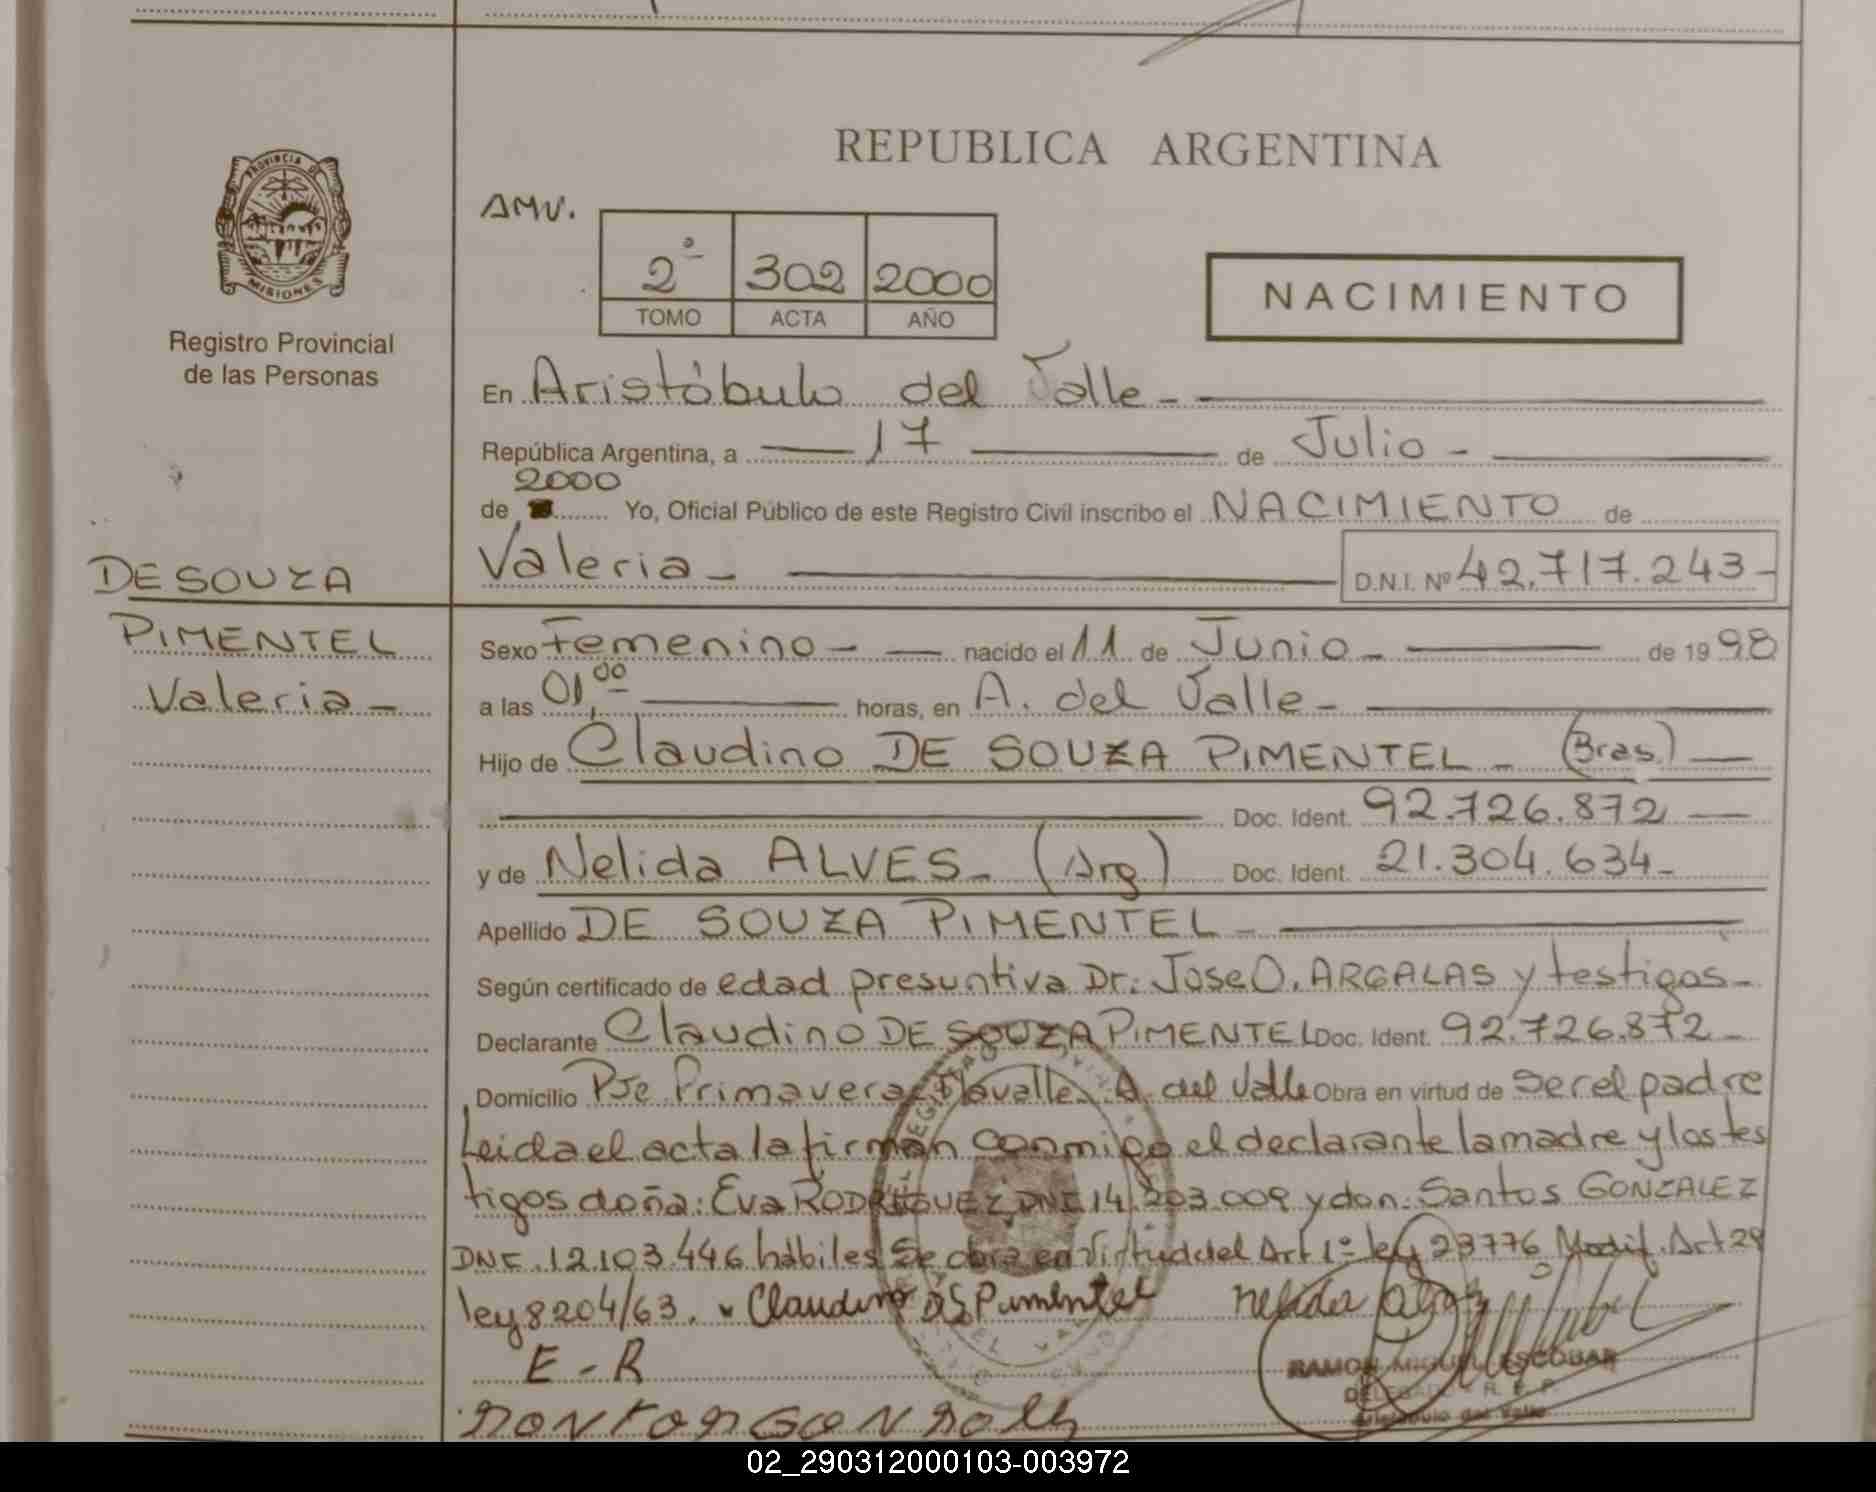 REPUBLICA ARGENTINA
PROVINCIA DE MISIONES
Registro Provincial
de las Personas
AMV.
2º 302 2000
TOMO ACTA AÑO
NACIMIENTO
En Aristóbulo del Valle -
República Argentina, a 17 de Julio -
2000
de Yo, Oficial Público de este Registro Civil inscribo el NACIMIENTO de
Valeria - D.N.I. Nº 42.717.243 -
DE SOUZA
PIMENTEL
Valeria -
Sexo Femenino - nacido el 11 de Junio - de 1998
a las 01,00 horas, en A. del Valle -
Hijo de Claudino DE SOUZA PIMENTEL - (Bras.)
Doc. Ident. 92.726.872
y de Nelida ALVES - (Arg) Doc. Ident. 21.304.634 -
Apellido DE SOUZA PIMENTEL -
Según certificado de edad presuntiva Dr: Jose O. ARGALAS y testigos -
Declarante Claudino DE SOUZA PIMENTEL Doc. Ident. 92.726.872 -
Domicilio Pje Primavera A. del Valle Obra en virtud de ser el padre
Leida el acta la firman conmigo el declarante la madre y los tes
tigos doña: Eva RODRIGUEZ DNI 14.203.009 y don: Santos GONZALEZ
DNI. 12.103.446 hábiles Se obra en virtud del Art 1º ley 23776 Modif. Art 29
ley 8204/63. Claudino D S Pimentel Nelida
E - R
RAMON MIGUEL ESCOBAR
DELEGADO R. P. P.
Aristóbulo del Valle
02_290312000103-003972